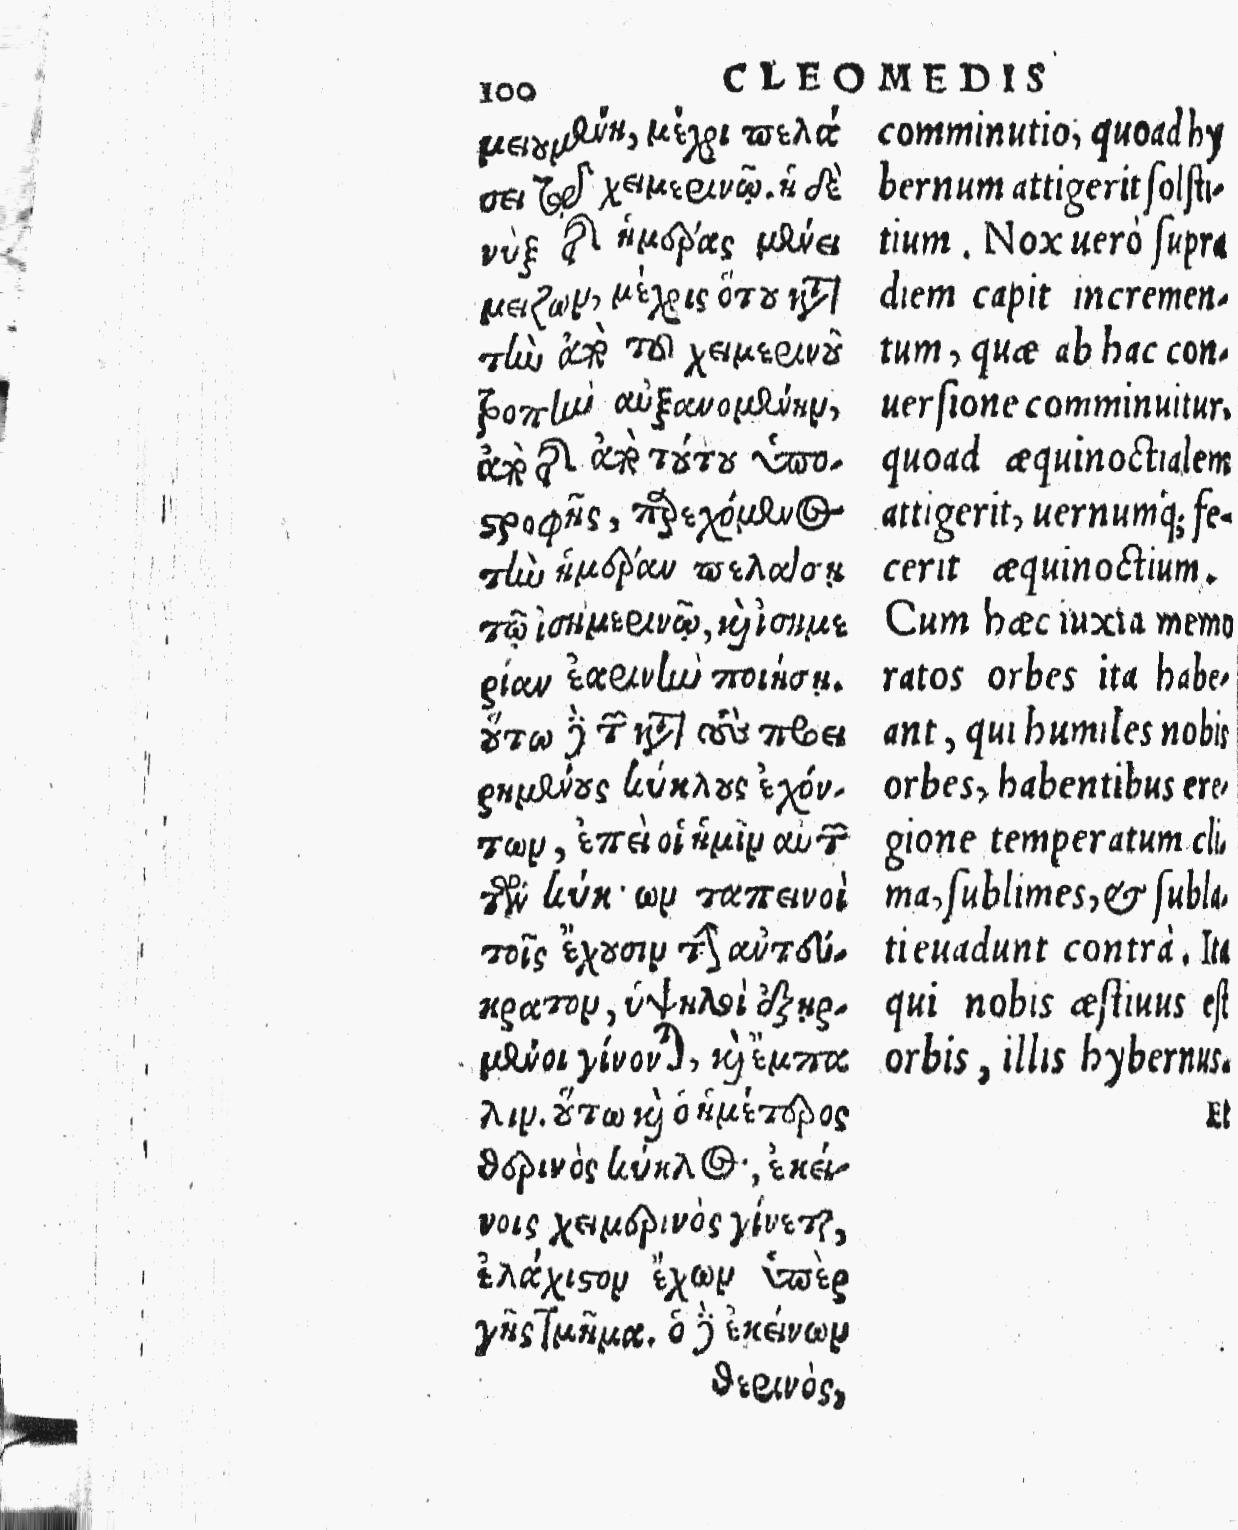 100
CLEOMEDIS
μειουμένη, μέχρι πελά
σει τῷ χειμερινῷ. ἡ δὲ
νὺξ τῆς ἡμέρας μένει
μείζων, μέχρις ὅτου κατὰ
τὴν ἀπὸ τοῦ χειμερινοῦ
τροπὴν αὐξανομένην,
ἀπὸ τῆς ἀπὸ τούτου ὑπο-
στροφῆς, παρεχόμενος
τὴν ἡμέραν πελάσῃ
τῷ ἰσημερινῷ, καὶ ἰσημε
ρίαν ἐαρινὴν ποιήσῃ.
οὕτω δὲ τῶν κατὰ τοὺς προει
ρημένους κύκλους ἐχόν-
των, ἐπεὶ οἱ ἡμῖν αὐτῶν
τῶν κύκ ων ταπεινοὶ
τοῖς ἔχουσιν τὴν αὐτοῦ-
κρατον, ὑψηλοὶ ἐξῃρ-
μένοι γίνονται, καὶ ἔμπα
λιν. οὕτω καὶ ὁ ἡμέτερος
θερινὸς κύκλος, ἐκεί-
νοις χειμερινὸς γίνεται,
ἐλάχιστον ἔχων ὑπὲρ
γῆς τμῆμα. ὁ δὲ ἐκείνων
θερινὸς,
comminutio, quoad hy
bernum attigerit solsti-
tium. Nox uerò supra
diem capit incremen-
tum, quæ ab hac con-
uersione comminuitur,
quoad æquinoctialem
attigerit, uernumq́; fe-
cerit æquinoctium.
Cum hæc iuxta memo
ratos orbes ita habe-
ant, qui humiles nobis
orbes, habentibus ere-
gione temperatum cli,
ma, sublimes, & subla-
ti euadunt contrà. Ita
qui nobis æstiuus est
orbis, illis hybernus.
Et